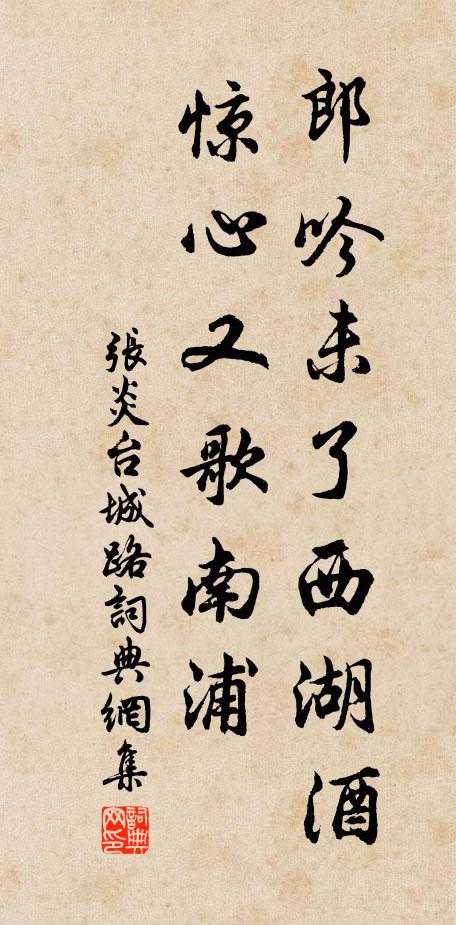 郎吟未了西湖酒
惊心又歌南浦
張炎台城路詞典網集
詞典网印